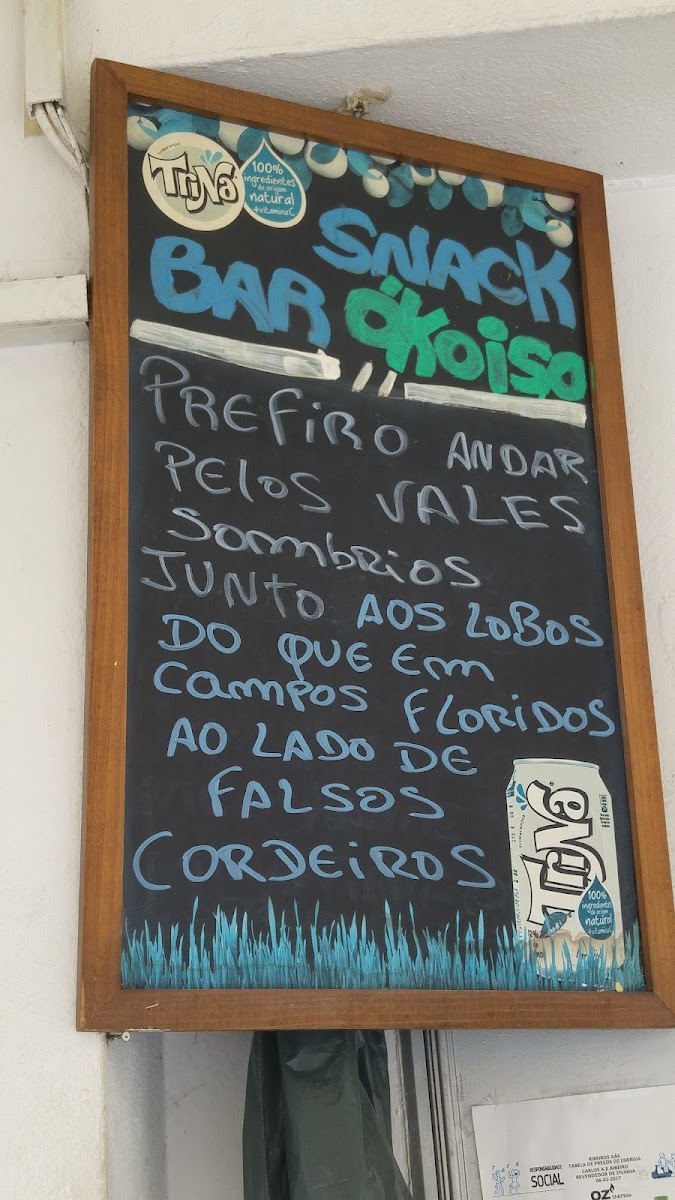 TriNa
100%
ingredientes
de origem
natural
+vitamina C
SNACK
BAR ÓKOISO
PREFIRO ANDAR
PELOS VALES
SOMBRIOS
JUNTO AOS LOBOS
DO QUE EM
CAMPOS FLORIDOS
AO LADO DE
FALSOS
CORDEIROS
TriNa
100%
ingredientes
de origem
natural
+vitamina C
RESPONSABILIDADE
SOCIAL
RIBEIROS GÁS
TABELA DE PREÇOS OZ ENERGIA
CARLOS A.F. RIBEIRO
REVENDEDOR DE
06-02-2017
OZ ENERGIA